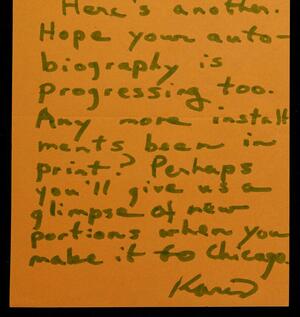 Here's another.
Hope your auto-
biography is
progressing too.
Any more install
ments been in
print? Perhaps
you'll give us a
glimpse of new
portions when you
make it to Chicago.